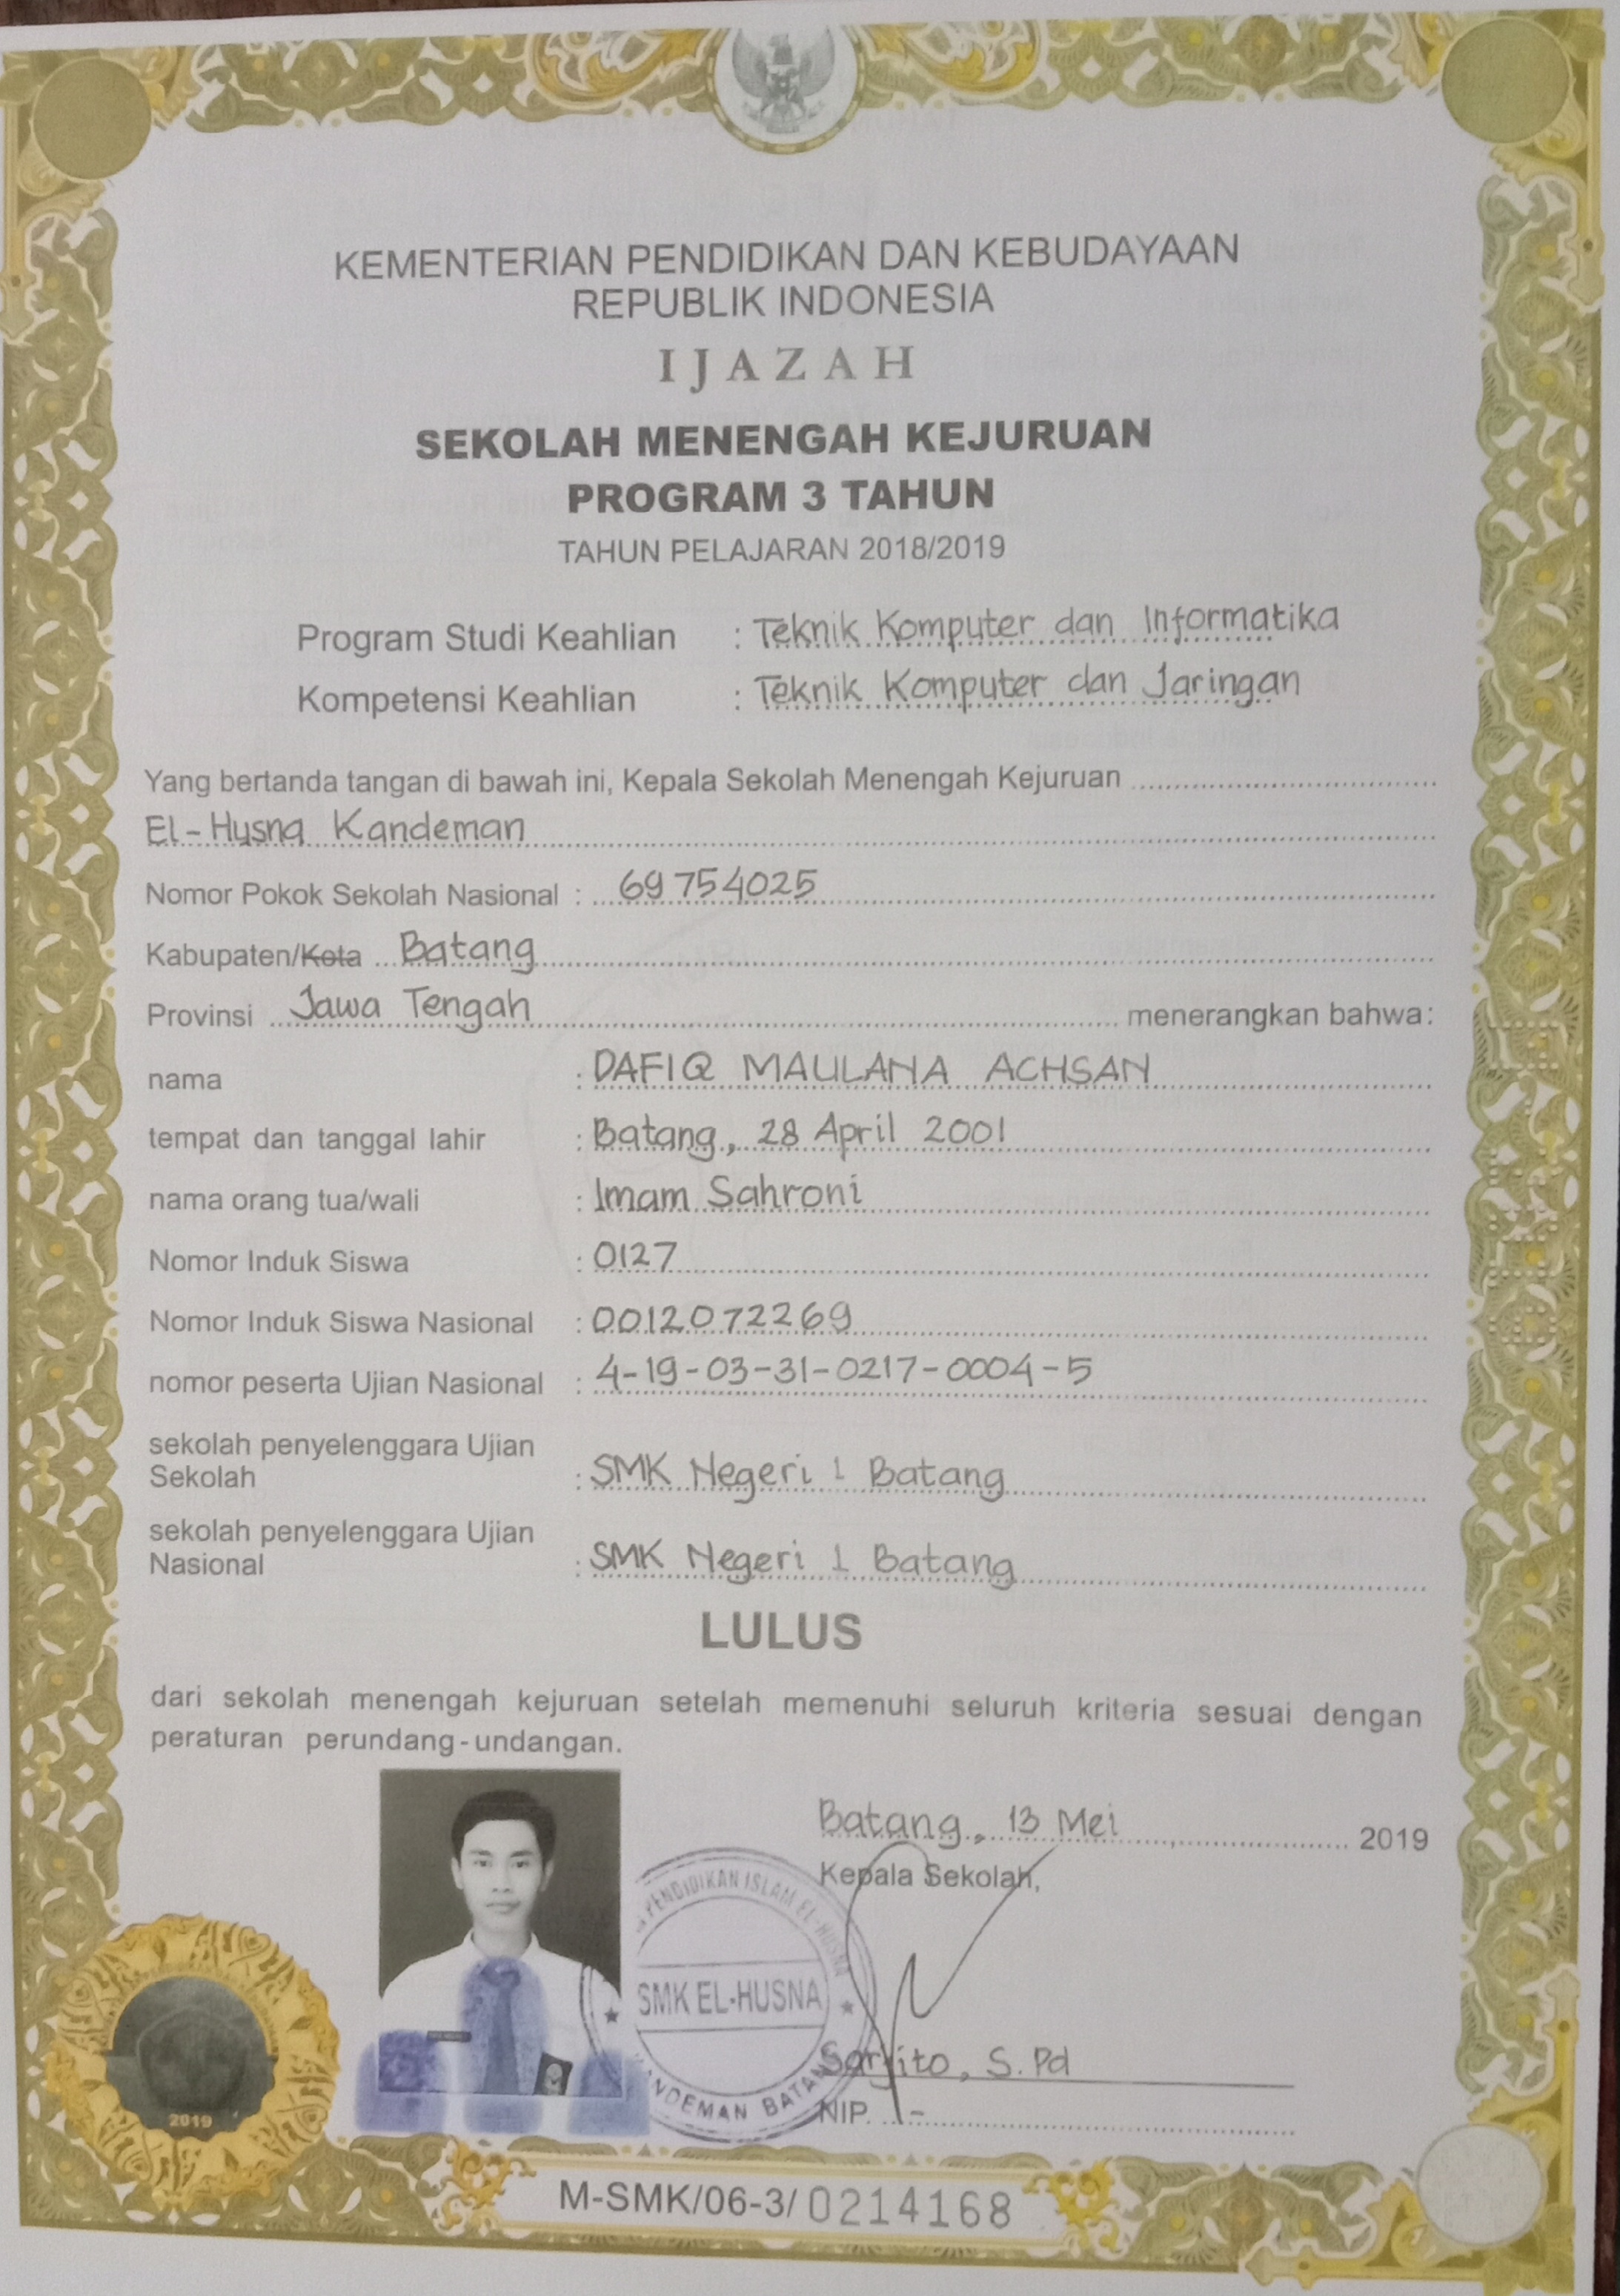 KEMENTERIAN PENDIDIKAN DAN KEBUDAYAAN
REPUBLIK INDONESIA
IJAZAH
SEKOLAH MENENGAH KEJURUAN
PROGRAM 3 TAHUN
TAHUN PELAJARAN 2018/2019
Program Studi Keahlian : Teknik Komputer dan Informatika
Kompetensi Keahlian : Teknik Komputer dan Jaringan
Yang bertanda tangan di bawah ini, Kepala Sekolah Menengah Kejuruan
El-Husna Kandeman
Nomor Pokok Sekolah Nasional : 69754025
Kabupaten/Kota Batang
Provinsi Jawa Tengah menerangkan bahwa:
nama : DAFIQ MAULANA ACHSAN
tempat dan tanggal lahir : Batang, 28 April 2001
nama orang tua/wali : Imam Sahroni
Nomor Induk Siswa : 0127
Nomor Induk Siswa Nasional : 0012072269
nomor peserta Ujian Nasional : 4-19-03-31-0217-0004-5
sekolah penyelenggara Ujian
Sekolah : SMK Negeri 1 Batang
sekolah penyelenggara Ujian
Nasional : SMK Negeri 1 Batang
LULUS
dari sekolah menengah kejuruan setelah memenuhi seluruh kriteria sesuai dengan
peraturan perundang-undangan.
Batang, 13 Mei 2019
Kepala Sekolah,
PENDIDIKAN ISLAM EL-HUSNA
SMK EL-HUSNA
KANDEMAN BATANG
S.Pd
NIP. -
2019
M-SMK/06-3/0214168